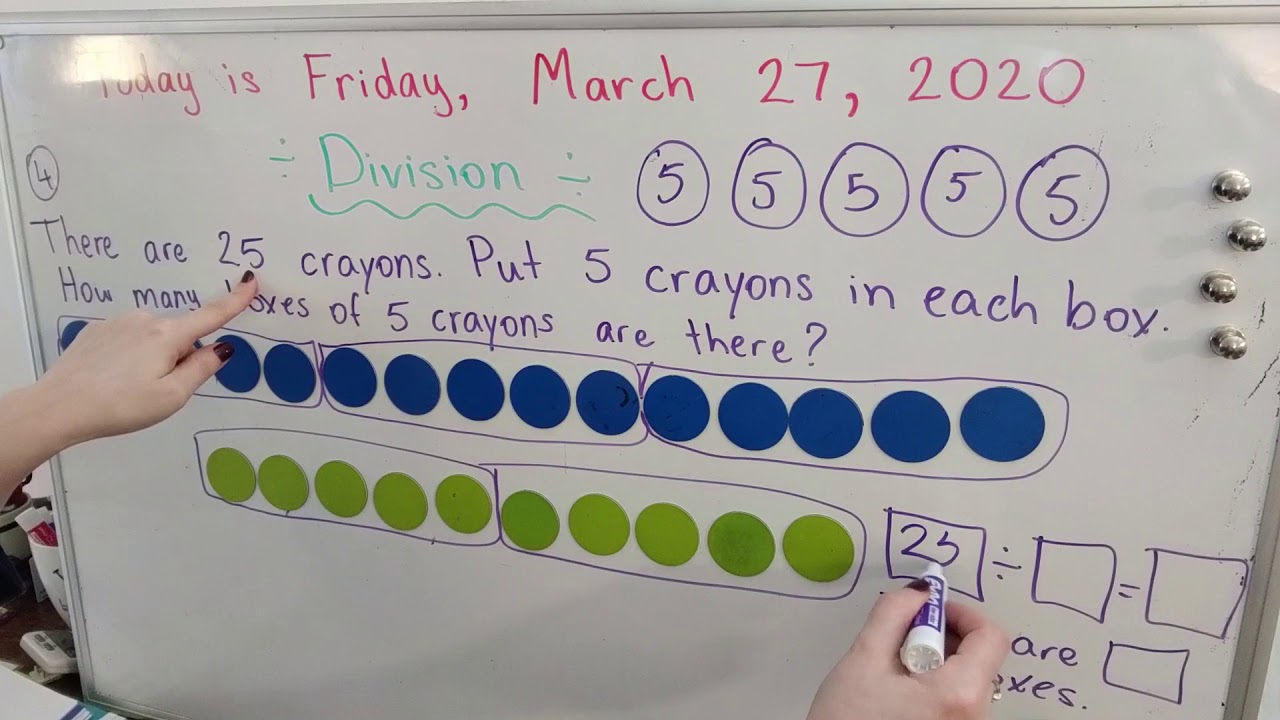 Today is Friday, March 27, 2020
÷ Division ÷
5 5 5 5 5
4
There are 25 crayons. Put 5 crayons in each box.
How many boxes of 5 crayons are there?
25 ÷ =
are